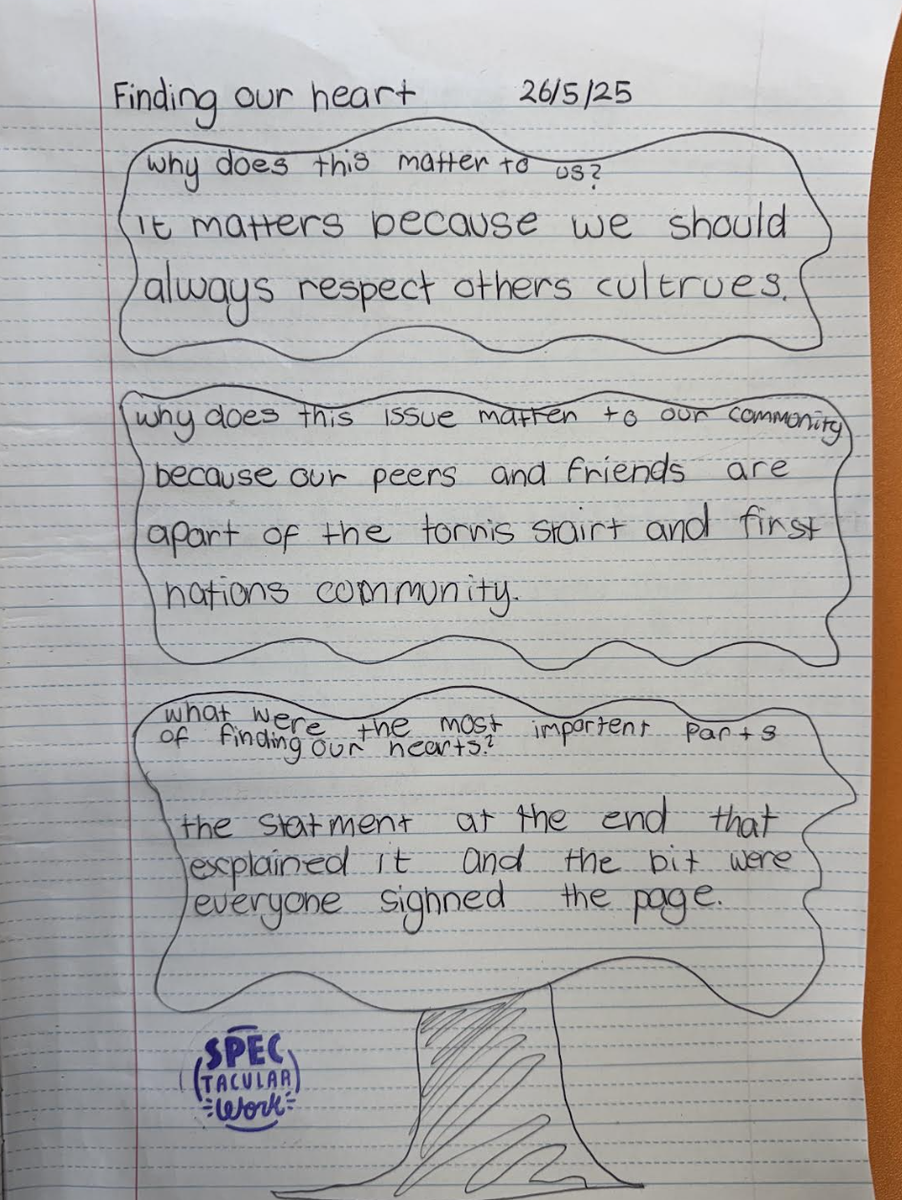 Finding our heart 26/5/25
why does this matter to us?
it matters because we should
always respect others cultrues.
why does this issue matten to our commonity
because our peers and friends are
apart of the torris stairt and first
nations community.
what were the most importent Parts
of finding our hearts?
the statment at the end that
esxplained it and the bit were
everyone sighned the page.
SPEC
TACULAR
Work